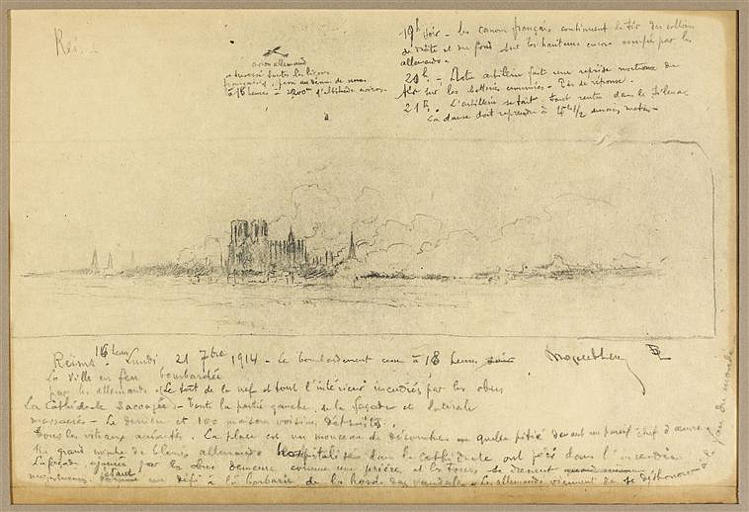 Rei
19h soir - les canons français continuent le tir des collines
de droite et du fond sur les hauteurs encore occupées par les
allemands.
20h - Notre artillerie fait une reprise nocturne de
tir sur les batteries ennemies - Pas de réponse.
21h. L'artillerie se tait. Tout rentre dans le silence
La danse doit reprendre à 4h 1/2 demain matin -
avion allemand
a traversé toutes les lignes
françaises, passe au dessus de nous
à 18 heures - 2200m d'altitude environ.
16 heures
Reims - Lundi 21 7bre 1914 - Le bombardement cesse à 18 heures
La ville en feu bombardée
par les allemands. Le toit de la nef et tout l'intérieur incendiés par les obus
La Cathédrale saccagée - Toute la partie gauche de la façade et latérale
massacrés - Le derrière et 100 maisons voisines détruites.
Tous les vitraux anéantis. La place est un monceau de décombres quelle pitié devant un pareil chef d'œuvre
Un grand nombre de blessés allemands hospitalisés dans la cathédrale ont péri dans l'incendie
La façade par les obus demeure comme une prière, et les tours se dressent
majestueuses comme un défi à la barbarie de la horde des vandales - Les allemands viennent de se déshonorer à la face du monde